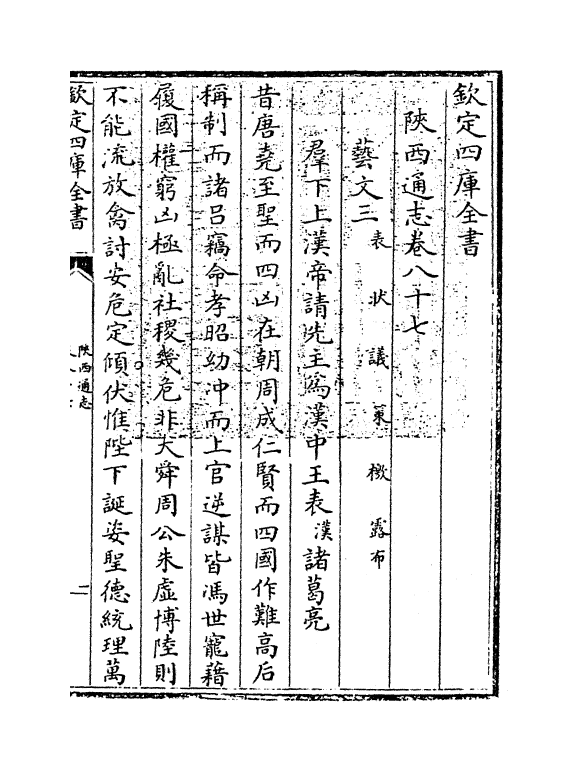 欽定四庫全書
陜西通志卷八十七
藝文三表狀議策檄露布
羣下上漢帝請先主為漢中王表漢諸葛亮
昔唐堯至聖而四凶在朝周成仁賢而四國作難高后
稱制而諸吕竊命孝昭幼冲而上官逆謀皆馮世寵藉
履國權窮凶極亂社稷幾危非大舜周公朱虛博陸則
不能流放禽討安危定傾伏惟陛下誕姿聖德統理萬
欽定四庫全書
陜西通志